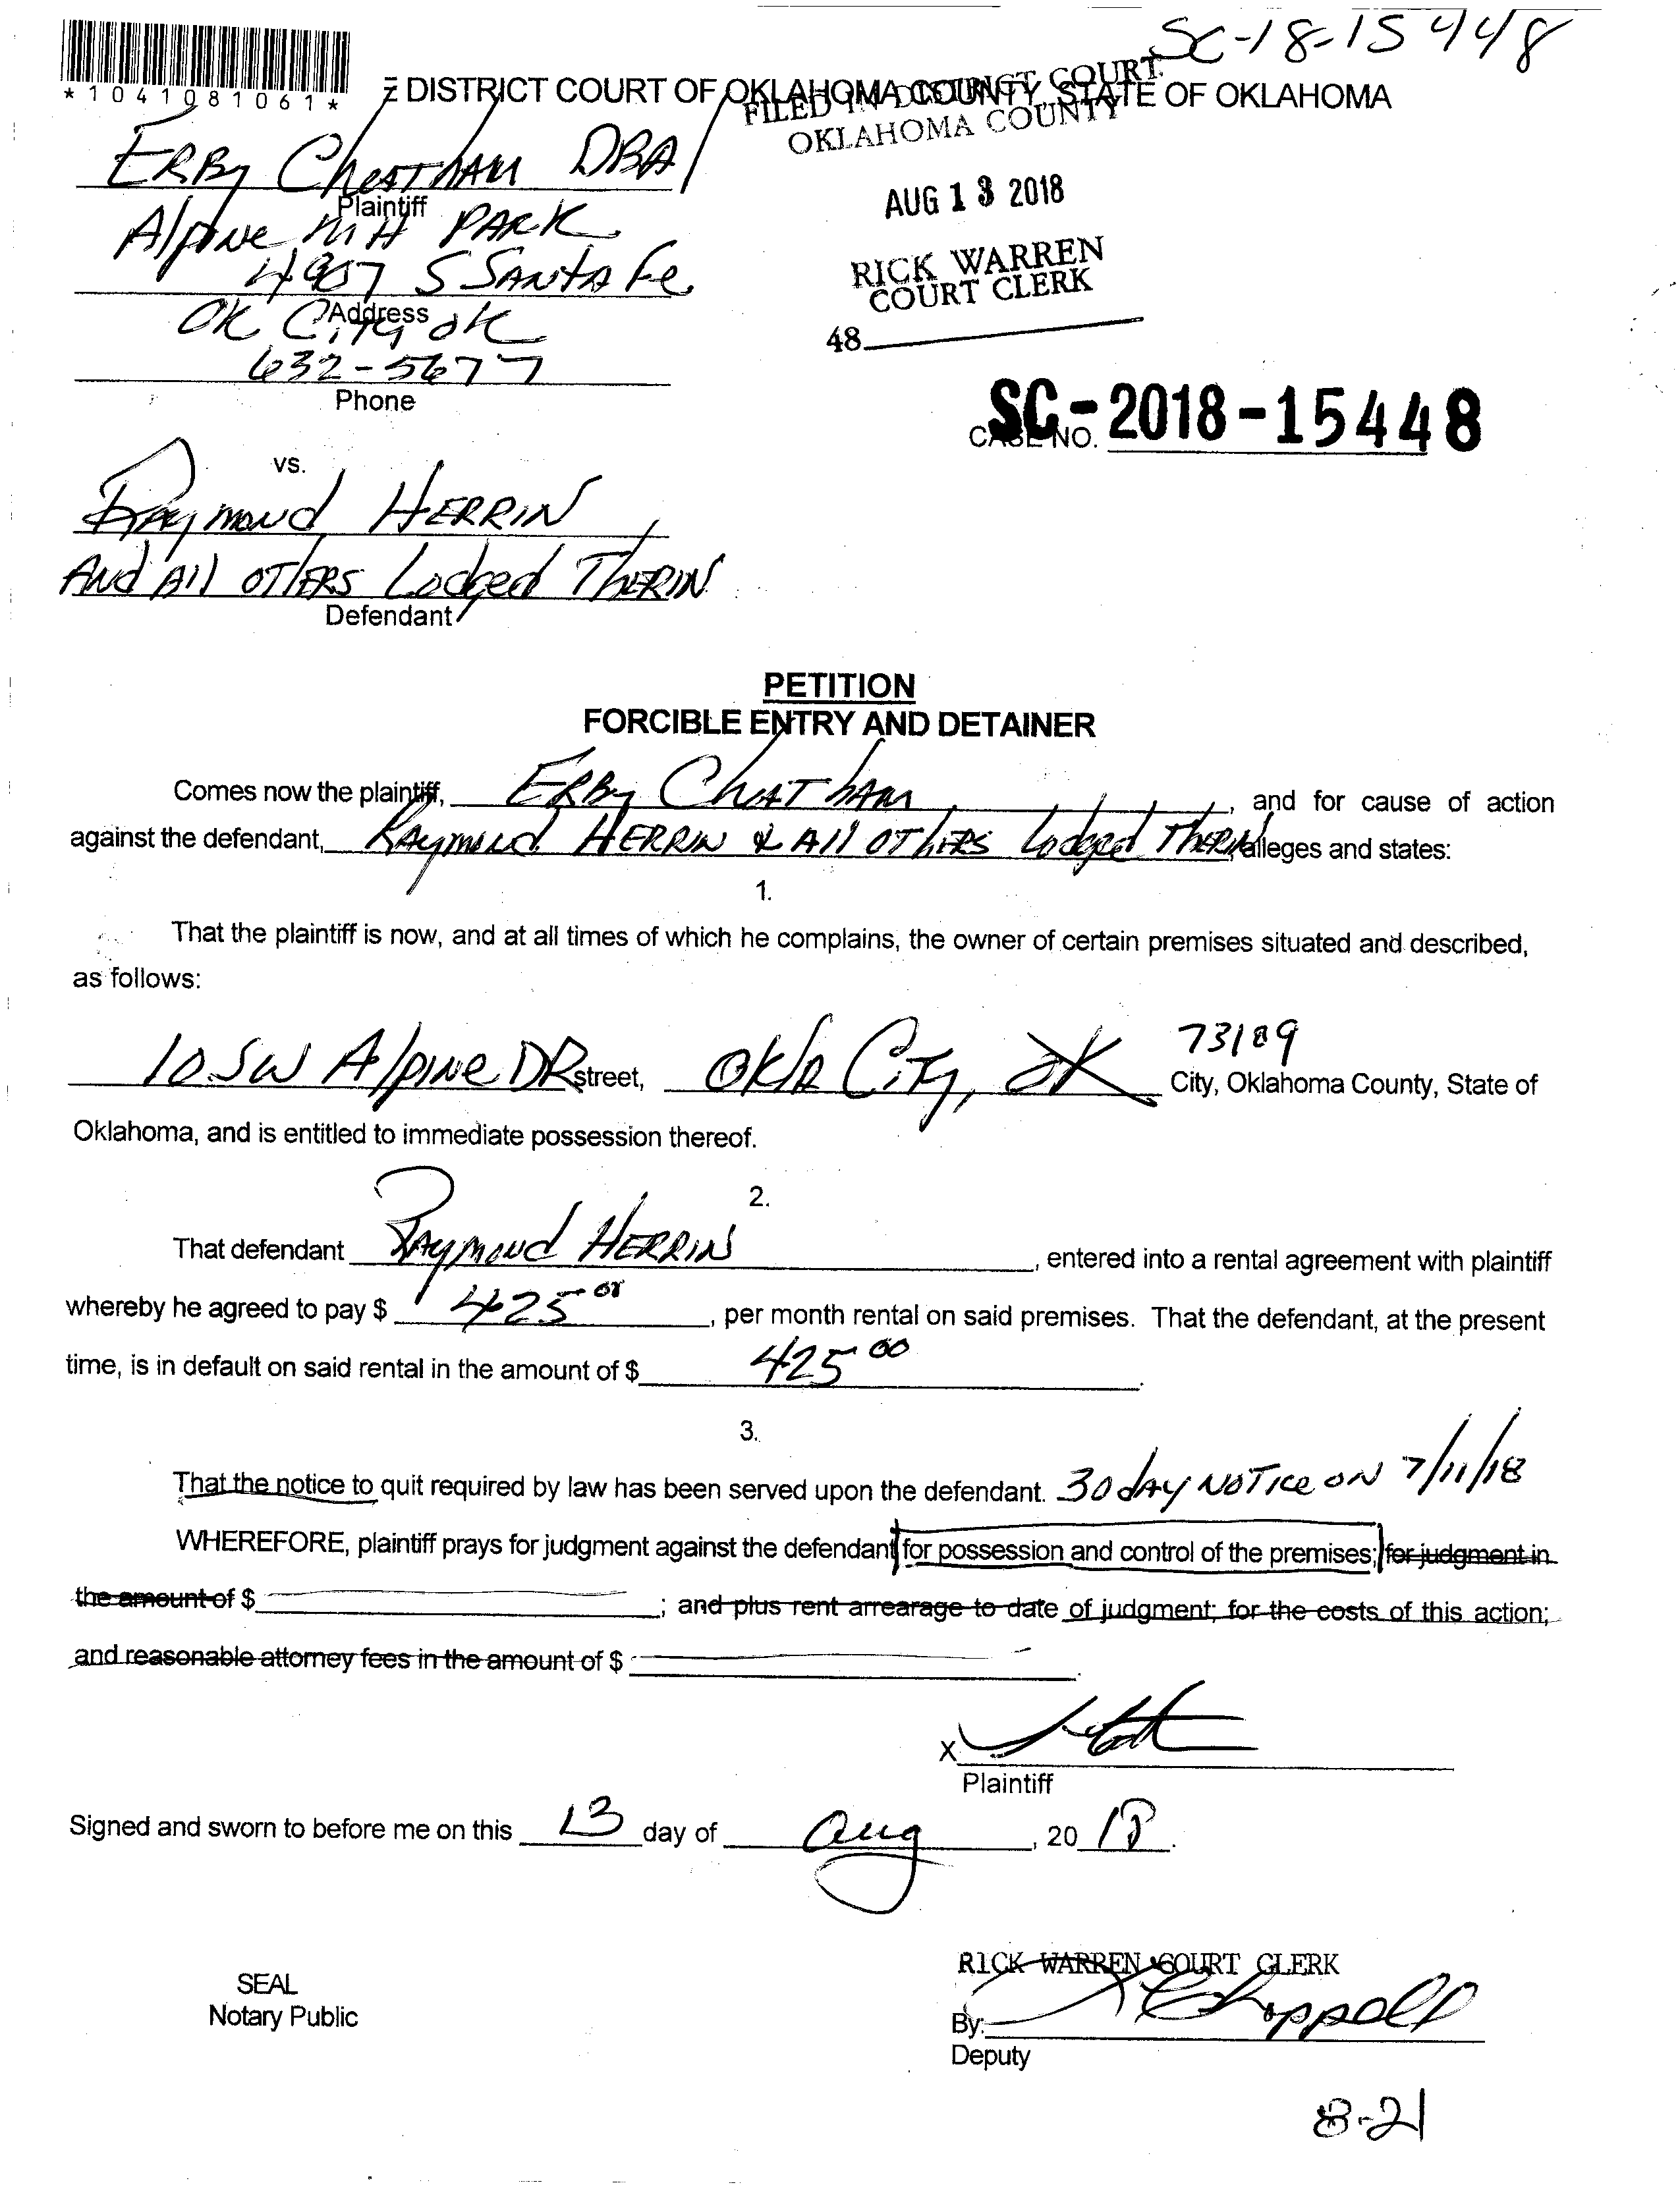 SC-18-15448
*1041081061*
DISTRICT COURT OF OKLAHOMA COUNTY, STATE OF OKLAHOMA
FILED IN DISTRICT COURT
OKLAHOMA COUNTY
ERBy CheATHAM DBA
Plaintiff
Alpine MH PARK
AUG 13 2018
4907 S SANTA Fe
RICK WARREN
COURT CLERK
Address
OK CiTy OK
48
632-5677
Phone
SC-2018-15448
CASE NO.
vs.
RAymond HERRIN
And All OTHERS Lodged THERIN
Defendant
PETITION
FORCIBLE ENTRY AND DETAINER
Comes now the plaintiff, ERBy CheATHAM, and for cause of action
against the defendant, RAymond HERRIN & All OTHERS Lodged THERIN alleges and states:
1.
That the plaintiff is now, and at all times of which he complains, the owner of certain premises situated and described,
as follows:
73109
10 SW Alpine DR street, Okla CiTy, OK City, Oklahoma County, State of
Oklahoma, and is entitled to immediate possession thereof.
2.
That defendant RAymond HERRIN, entered into a rental agreement with plaintiff
whereby he agreed to pay $ 425 00, per month rental on said premises. That the defendant, at the present
time, is in default on said rental in the amount of $ 425 00.
3.
That the notice to quit required by law has been served upon the defendant. 30 dAy NOTICe ON 7/11/18
WHEREFORE, plaintiff prays for judgment against the defendant for possession and control of the premises; for judgment in
the amount of $ ; and plus rent arrearage to date of judgment; for the costs of this action;
and reasonable attorney fees in the amount of $ .
X
Plaintiff
Signed and sworn to before me on this 13 day of Aug, 2018.
RICK WARREN COURT CLERK
SEAL
Notary Public
By: Chappell
Deputy
8-21